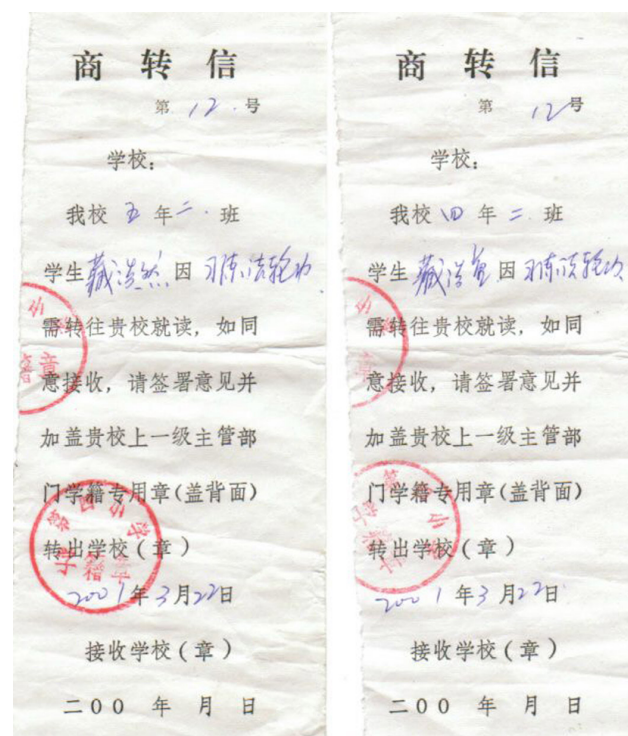 商转信
第 12 号
学校:
我校 五 年 二 班
学生 藏浩然 因 习练法轮功
需转往贵校就读, 如同
意接收, 请签署意见并
加盖贵校上一级主管部
门学籍专用章(盖背面)
转出学校(章)
2001年3月22日
接收学校(章)
二00 年 月 日
商转信
第 12 号
学校:
我校 四 年 二 班
学生 藏浩 因 习练法轮功
需转往贵校就读, 如同
意接收, 请签署意见并
加盖贵校上一级主管部
门学籍专用章(盖背面)
转出学校(章)
2001年3月22日
接收学校(章)
二00 年 月 日